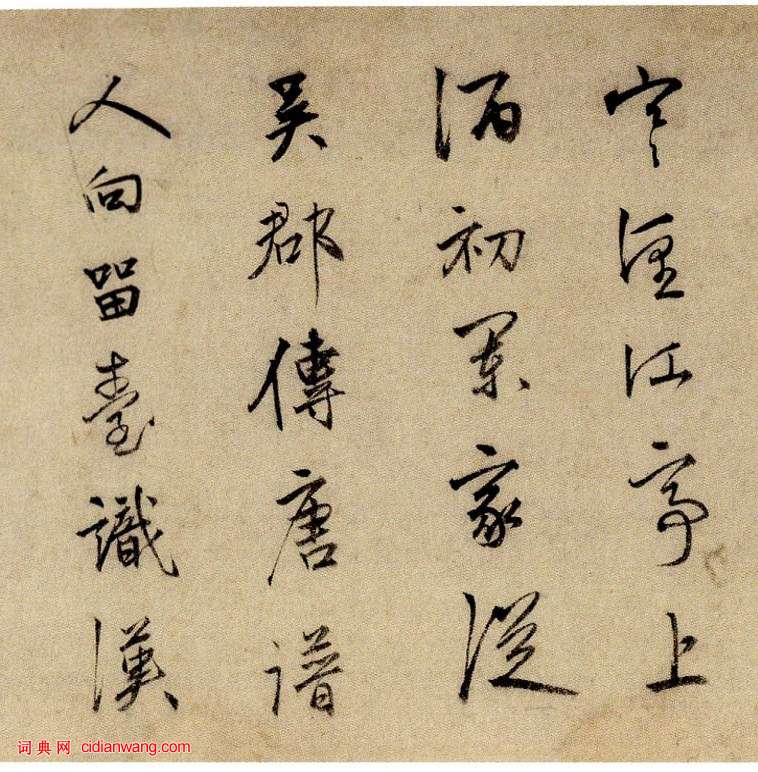 寒江亭上
酒初闌家從
吳郡傳唐譜
人向留臺識漢
词典网 cidianwang.com